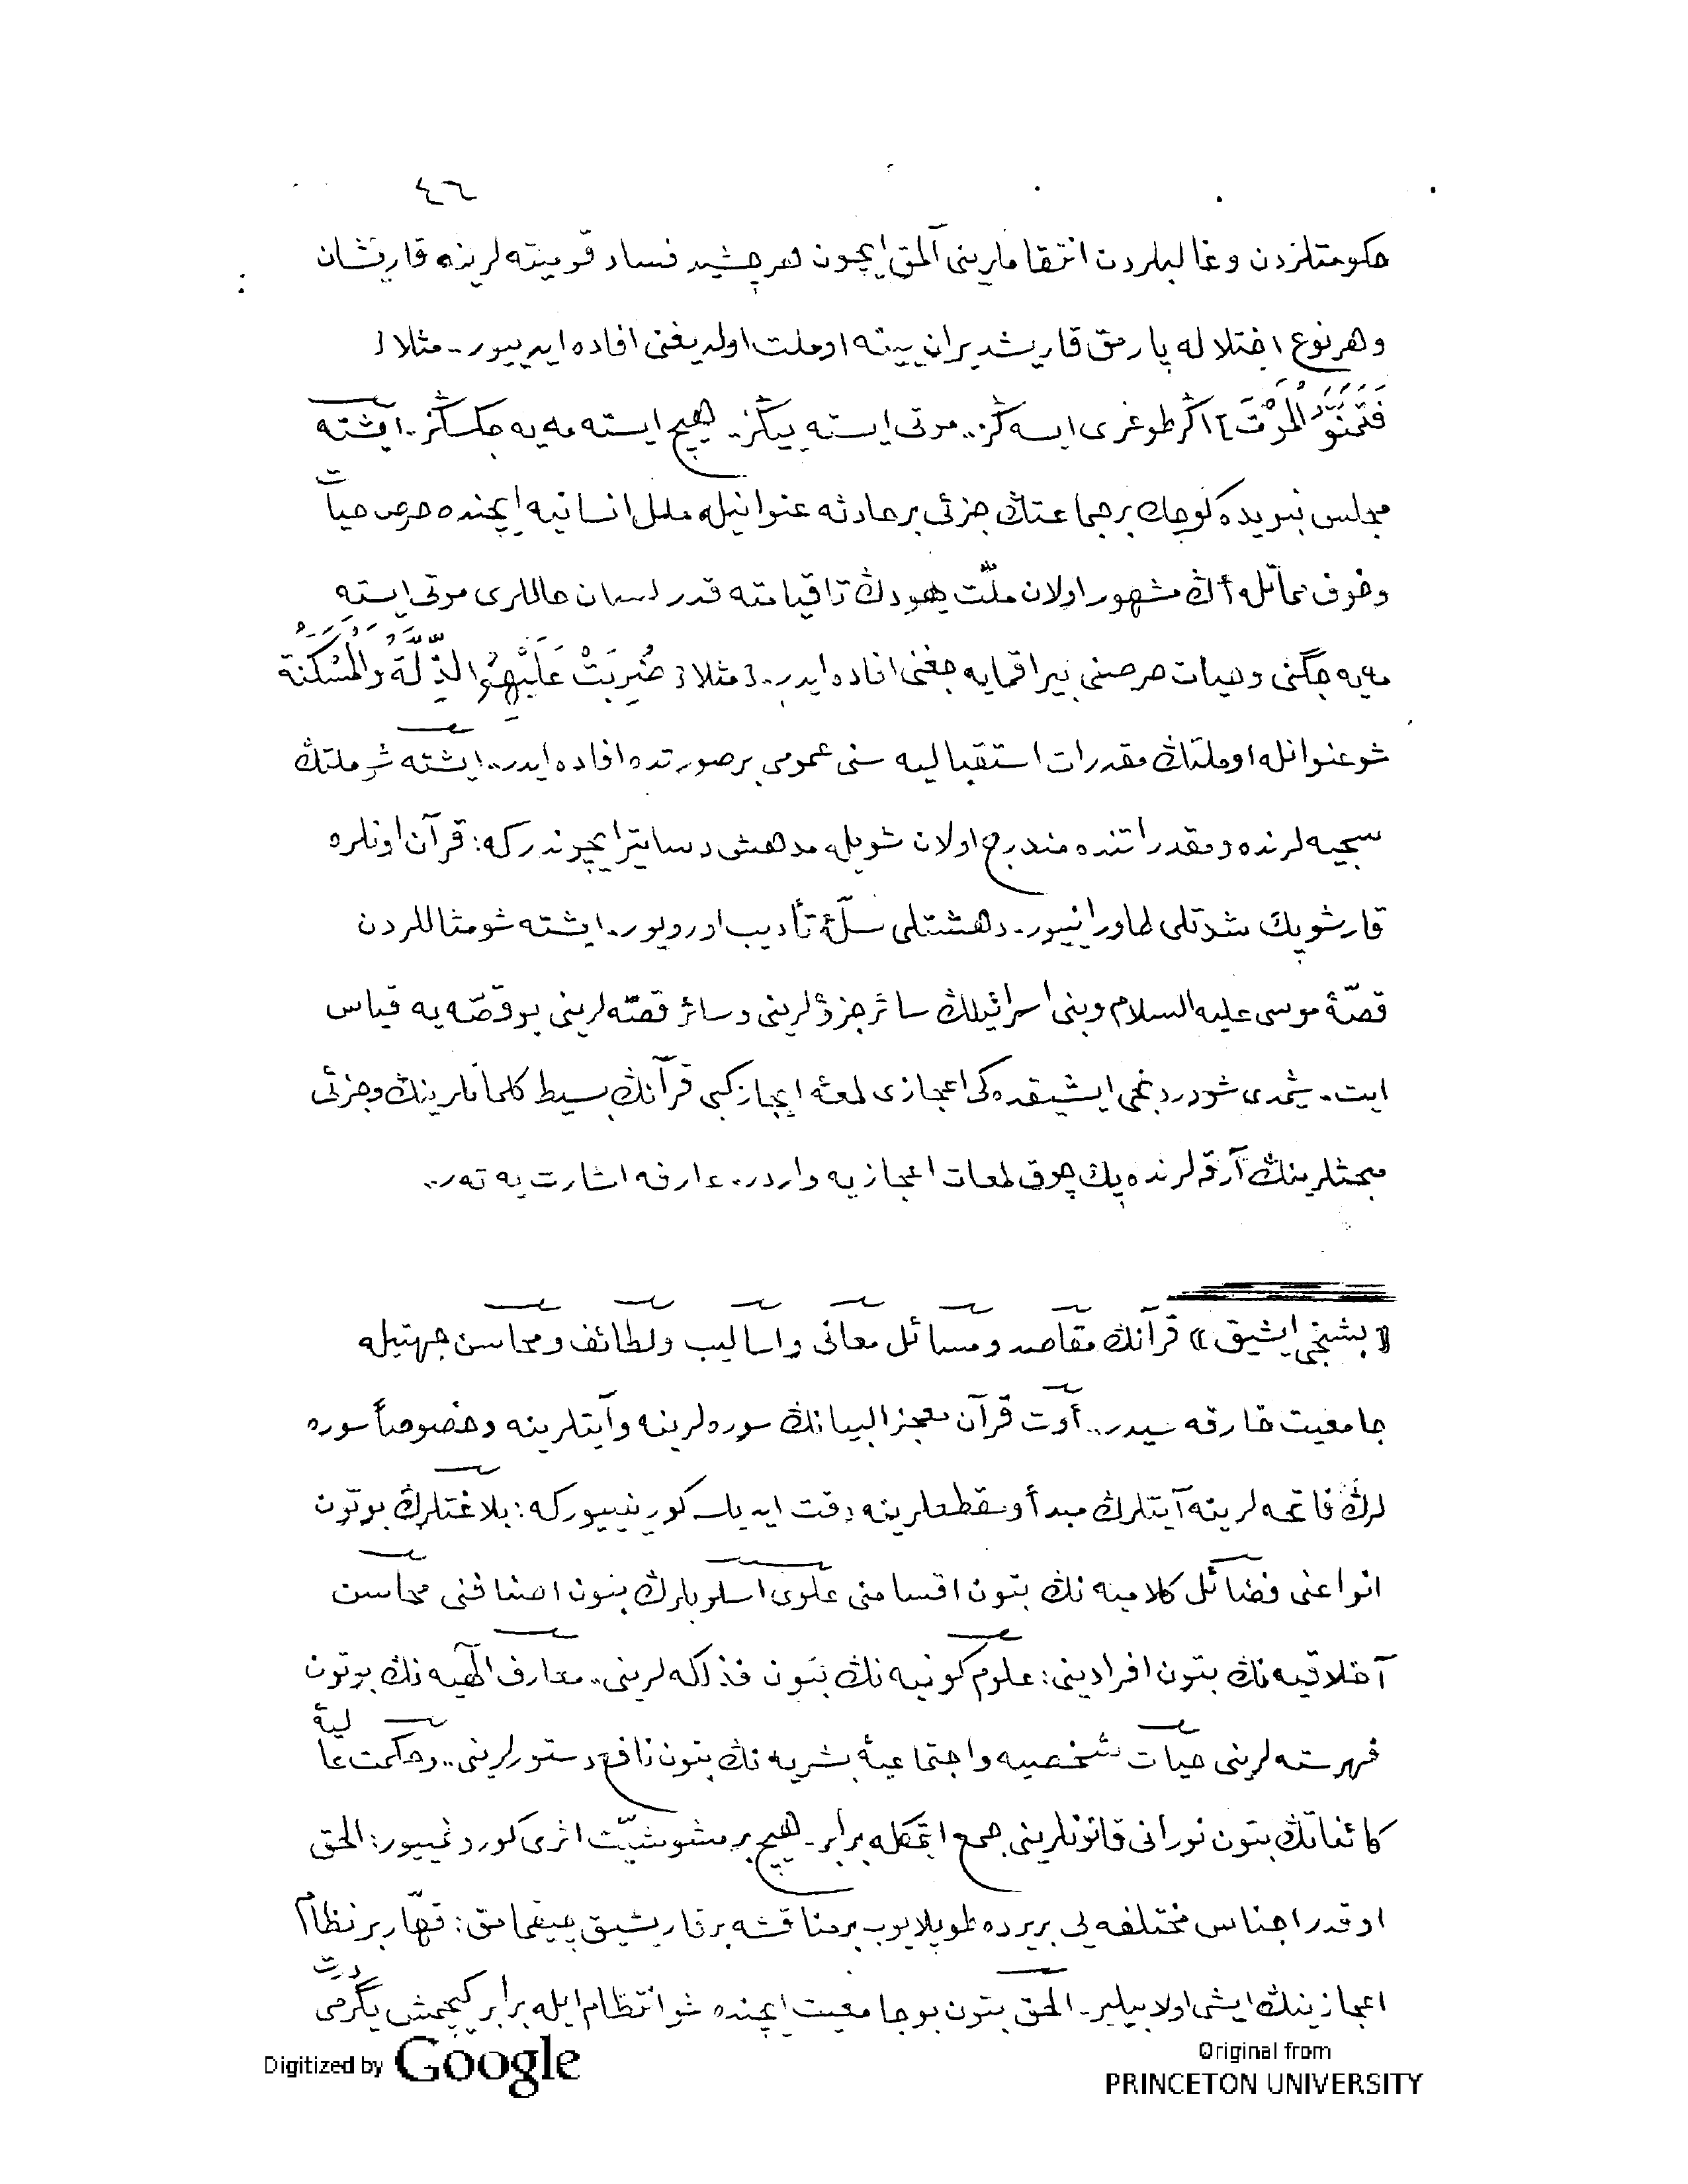 ٤٦
حكومتلردن وغالبلردن انتقاملرينى آلمق ايچون هر چشيد فساد قوميته لرينه قاريشان
وهر نوع اختلاله پارمق قاريشديران يينه او ملت اولديغنى افاده ايدييور.. مثلا [
فَتَمَنَّوُا الْمَوْتَ] اگر طوغرى ايسه ڭز.. موتى ايسته ييڭز.. هيچ ايسته مه يه جكسڭز.. ايشته
مجلس نبويده كوچك بر جماعتڭ جزئى بر حادثه عنوانيله ملل انسانيه ايچنده حرص حيات
وخوف مماتله أڭ مشهور اولان ملّت يهودڭ تا قيامته قدر لسان حاللرى موتى ايسته
مه يه جگنى وحيات حرصنى بيراقمايه جغنى افاده ايدر.. [مثلا [ ضُرِبَتْ عَلَيْهِمُ الذِّلَّةُ وَالْمَسْكَنَةُ
شو عنوانله او ملتڭ مقدرات استقباليه سنى عمومى بر صورتده افاده ايدر.. ايشته شو ملتڭ
سجيه لرنده ومقدراتنده مندرج اولان شويله مدهش دساتير ايچوندركه: قرآن اونلره
قارشو پك شدتلى طاورانييور.. دهشتلى سلّۀ تأديب اورويور.. ايشته شو مثاللردن
قصّۀ موسى عليه السلام وبنى اسرائيلڭ سائر جزؤلرينى وسائر قصّه لرينى بو قصّه يه قياس
ايت.. شيمدى شو دردنجى ايشيقده كى اعجازى لمعۀ ايجاز كبى قرآنڭ بسيط كلماتلرينڭ وجزئى
مبحثلرينڭ آرقه لرنده پك چوق لمعات اعجازيه واردر.. عارفه اشارت يه ته ر..
« بشنجى ايشيق » قرآنڭ مقاصد ومسائل معانى واساليب ولطائف ومحاسن جهتيله
جامعيت خارقه سيدر.. أوت قرآن معجز البيانڭ سوره لرينه وآيتلرينه وخصوصاً سوره
لرڭ فاتحه لرينه آيتلرڭ مبدأ ومقطعلرينه دقت ايديلسه كورينييوركه: بلاغتلرڭ بوتون
انواعنى فضائل كلاميه نڭ بتون اقسامنى علوى اسلوبلرڭ بتون اصنافنى محاسن
آخلاقيه نڭ بتون افرادينى: علوم كونيه نڭ بتون فذلكه لرينى.. معارف الٰهيه نڭ بوتون
فهرسته لرينى حيات شخصيه واجتماعيۀ بشريه نڭ بتون نافع دستورلرينى.. وحكمت عاليۀ
كائناتڭ بتون نورانى قانونلرينى جمع ايتمكله برابر.. هيچ بر مشوشيّت اثرى كوردنمييور: الحق
او قدر اجناس مختلفه يى بريرده طوپلايوب بر مناقشه بر قاريشيق چيقمامق: قهّار بر نظام
اعجازينڭ ايشى اولابيلير.. الحق بتون بو جامعيت ايچنده شو انتظام ايله برابر كچمش يگرمى درت
Digitized by Google
Original from
PRINCETON UNIVERSITY